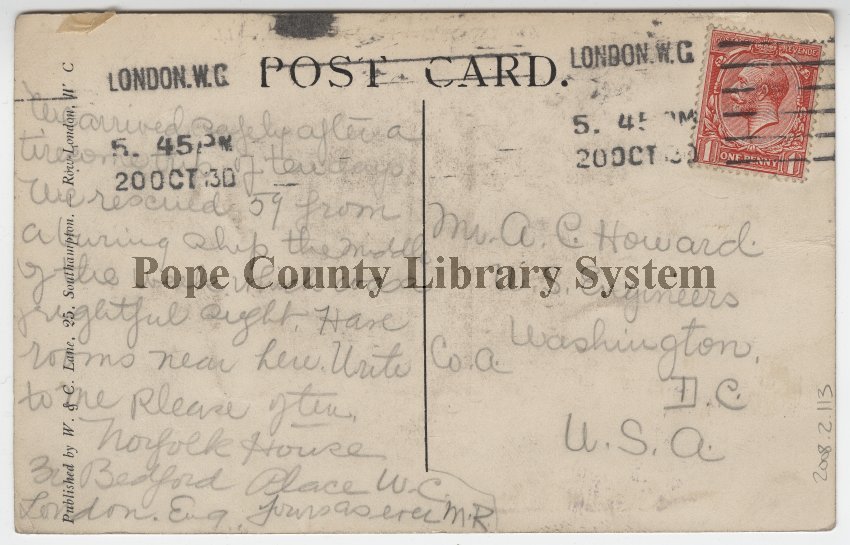 POST CARD.
LONDON.W.C
5. 45PM
20OCT 30
LONDON.W.C
5. 45 PM
20OCT 30
REVENUE
1 ONE PENNY 1
We arrived safely after a
tiresome trip of ten days.
We rescued 59 from
a burning ship the middle
of the
frightful sight. Have
rooms near here. Write
to me please often.
Norfolk House
Bedford Place W.C.
London. Eng. Yours as ever M.R
Mr. A. C. Howard.
U. S. Engineers
Washington,
Co. A
D.C.
U.S.A.
Pope County Library System
Published by W. & C. Lane, 25, Southampton. Row London, W C
2008.2.113